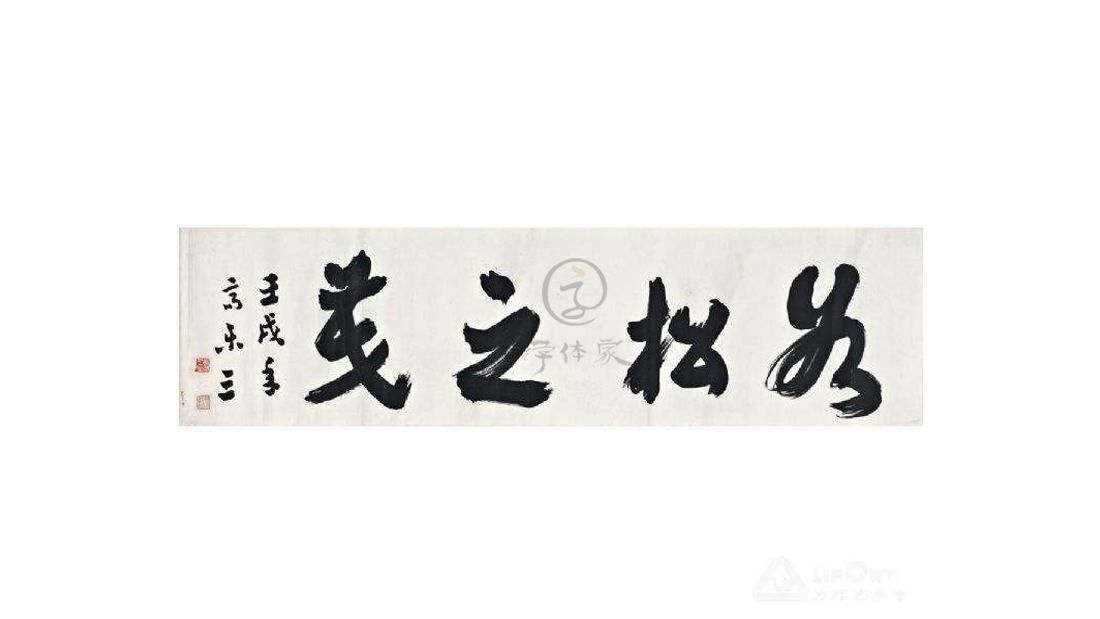 如松之茂
壬戌年
高乐三
字体家
LIPONT